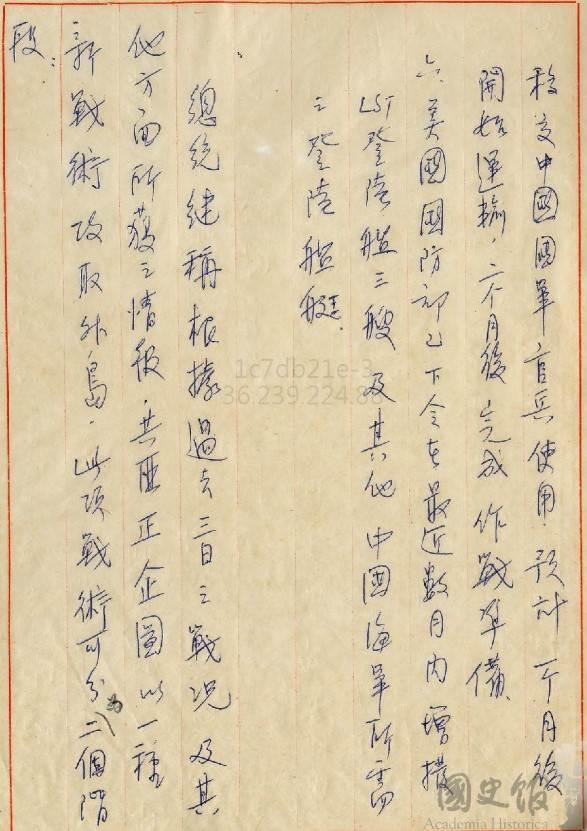 移交中國國軍官兵使用，預計一个月後
開始運輸，六个月後完成作戰準備。
六、美國國防部已下令在最近數月內增撥
LST登陸艦三艘及其他中國海軍所需
之登陸艦艇。
總統繼稱根據過去三日之戰況及其
他方面所獲之情報，共匪正企圖以一種
新戰術攻取外島，此項戰術可分為二個階
段：
1c7db21e-3
36 239.224.8
國史館
Academia Historica